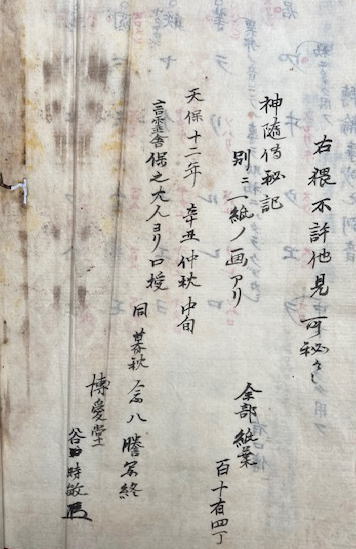 右猥不許他見可秘々し
神随傳秘記
別ニ一紙ノ画アリ
全部紙葉
百十有四丁
天保十二年辛丑仲秋中旬
言霊舎保之大人ヨリ口授
同暮秋念八謄写終
博愛堂
谷 時敏